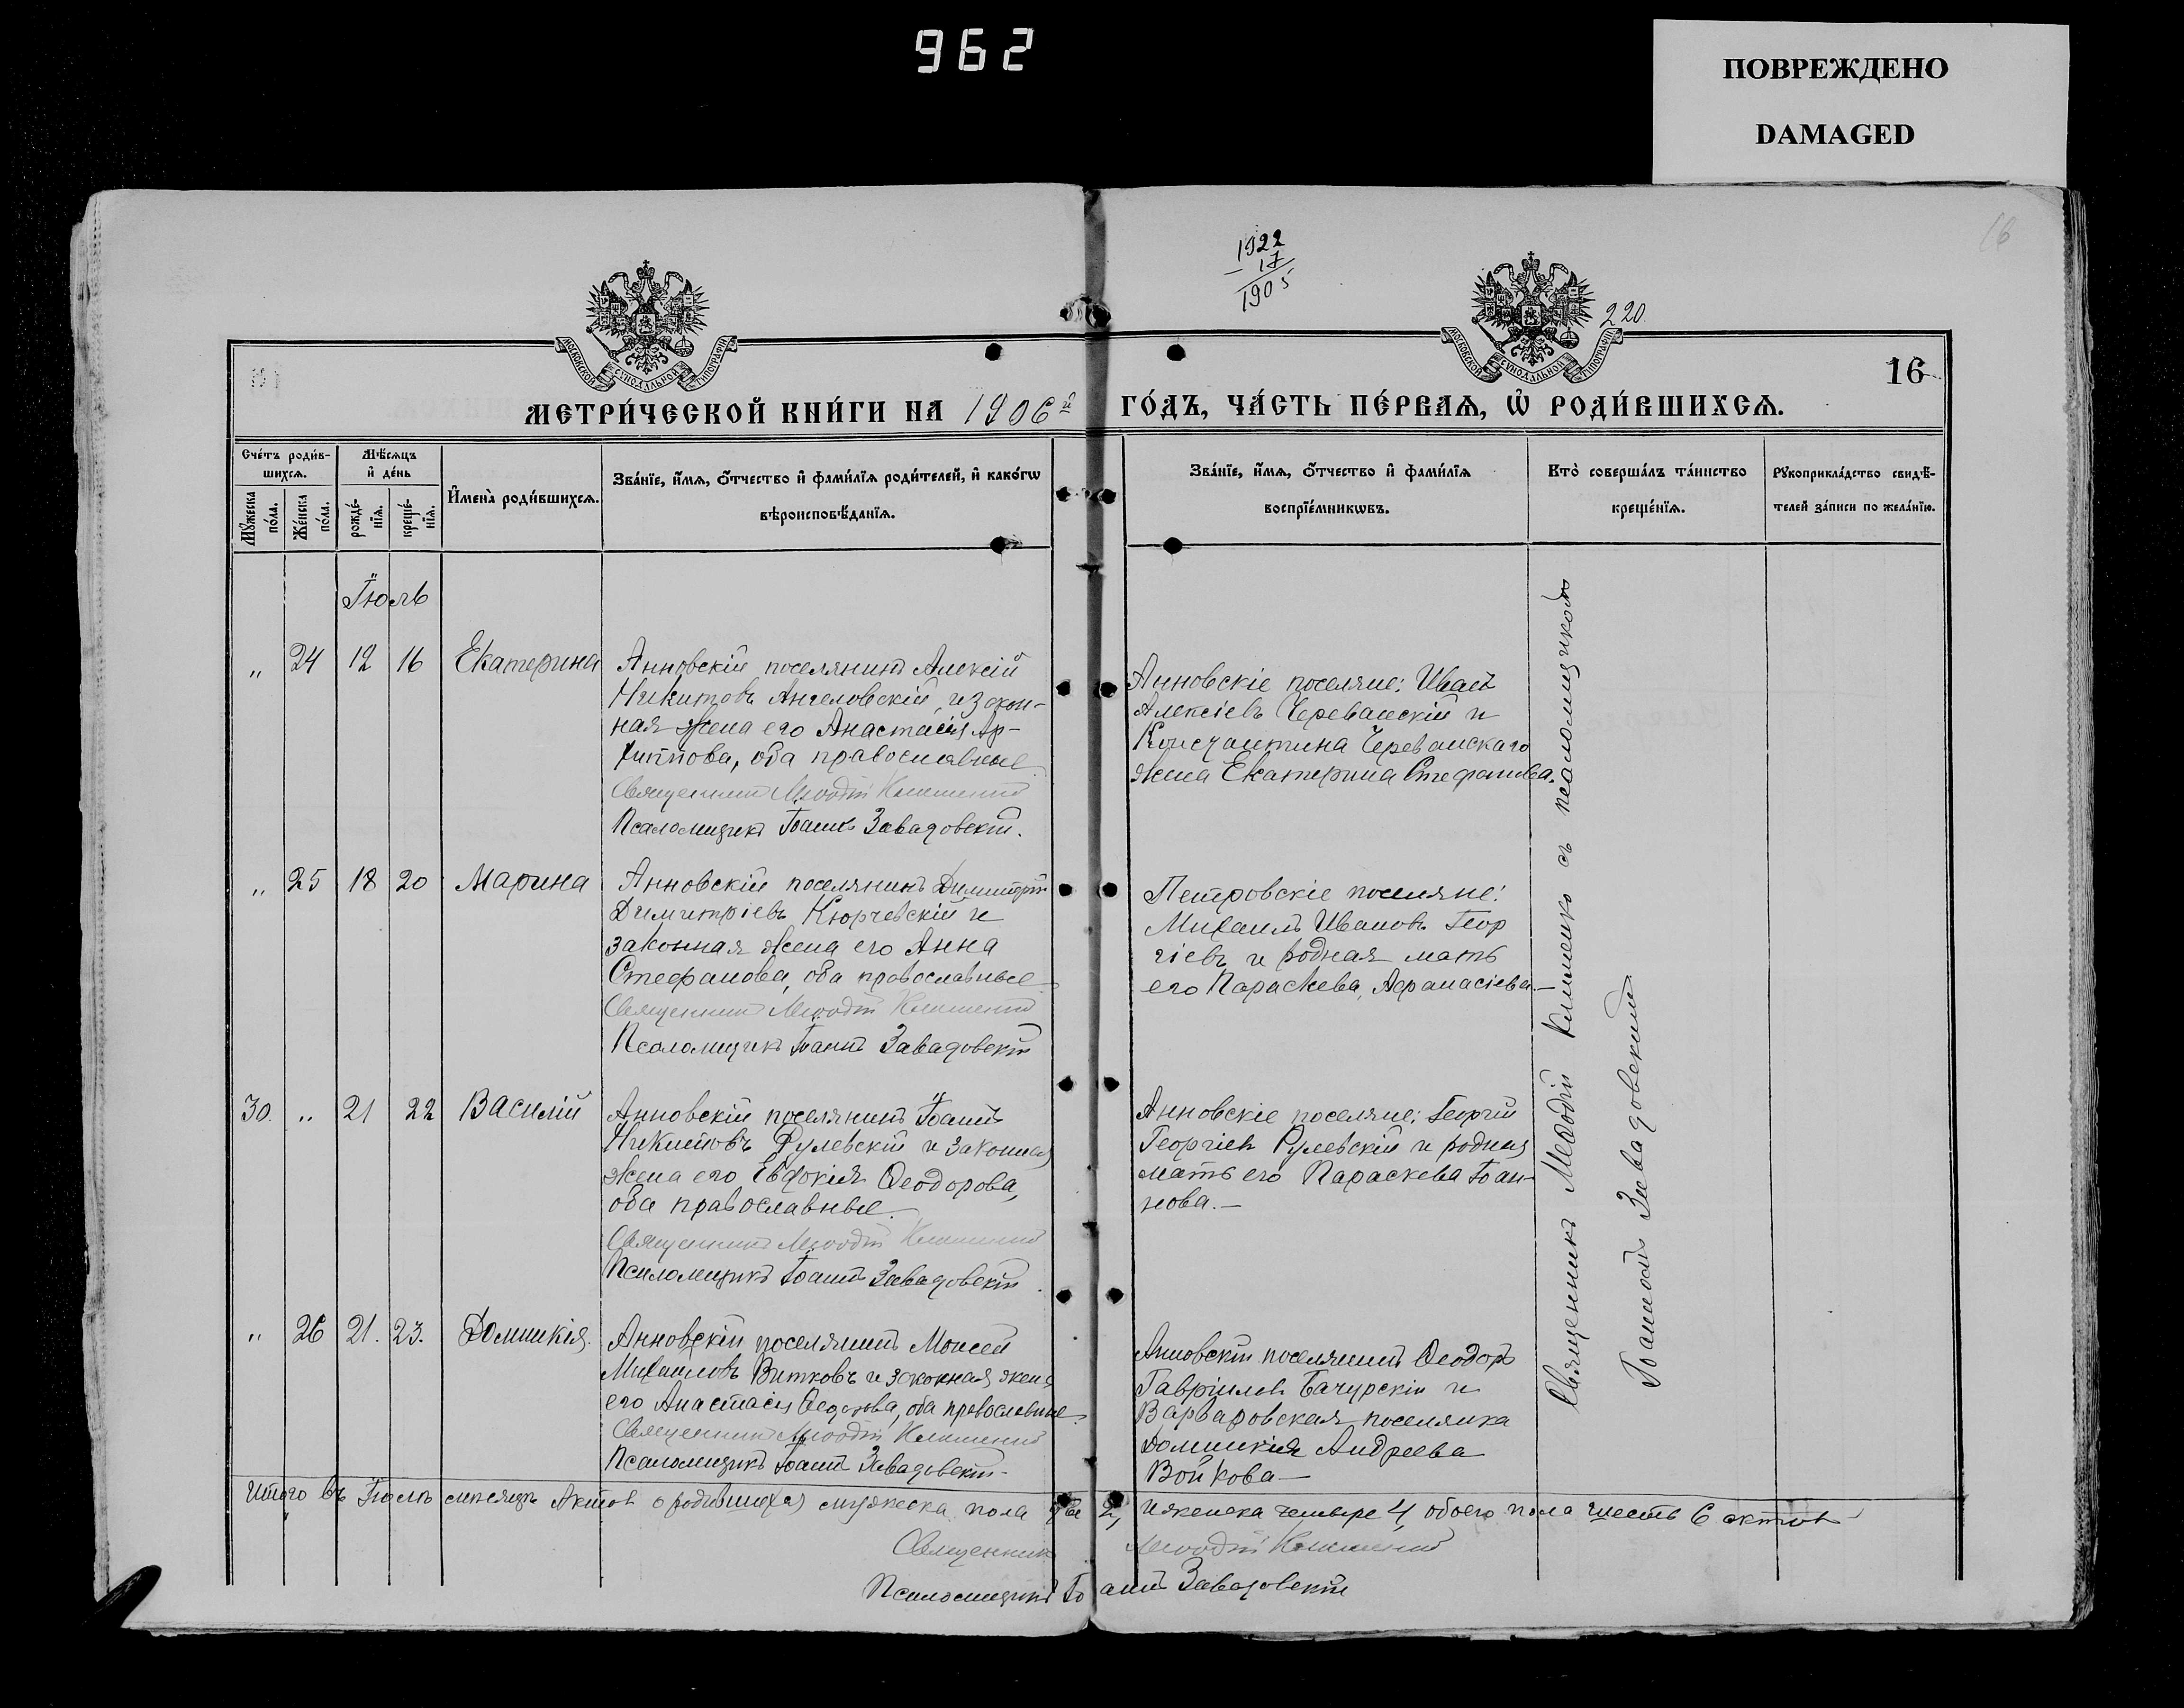 962
ПОВРЕЖДЕНО
DAMAGED
16
1922
– 17
1905
220.
МОСКОВСКОЙ СѴНОДАЛЬНОЙ ТИПОГРАФІИ
МОСКОВСКОЙ СѴНОДАЛЬНОЙ ТИПОГРАФІИ
16
МЕТРИ́ЧЕСКОЙ КНИ́ГИ НА 1906й ГО́ДЪ, ЧА́СТЬ ПЕ́РВАѦ, Ѡ҆ РОДИ́ВШИХСѦ.
Сче́тъ роди́вшихсѧ.
Мꙋ́жеска по́ла.
Же́нска по́ла.
Мѣ́сѧцъ и҆ де́нь
рожде́нїѧ.
креще́нїѧ.
И҆мена̀ роди́вшихсѧ.
Зва́нїе, и҆́мѧ, ѻ҆́тчество и҆ фами́лїѧ роди́телей, и҆ како́гѡ
вѣроисповѣ́данїѧ.
Зва́нїе, и҆́мѧ, ѻ҆́тчество и҆ фами́лїѧ
воспрїе́мникѡвъ.
Кто̀ соверша́лъ та́инство
креще́нїѧ.
Рꙋкоприкла́дство свидѣ́-
телей за́писи по жела́нїю.
Іюль
„ 24 12 16 Екатерина
Анновскій поселянинъ Алексій
Никитовъ Ангеловскій, и закон-
ная жена его Анастасія Ар-
хиппова, оба православные
Священникъ Меѳодій Клименко
Псаломщикъ Іоаннъ Завадовскій.
Анновскіе поселяне: Иванъ
Алексіевъ Череванскій и
Константина Череванскаго
жена Екатерина Стефанова.
„ 25 18 20 Марина
Анновскій поселянинъ Димитрій
Димитріевъ Кюрчевскій и
законная жена его Анна
Стефанова, оба православные
Священникъ Меѳодій Клименко
Псаломщикъ Іоаннъ Завадовскій
Петровскіе поселяне:
Михаилъ Ивановъ Геор
гіевъ и родная мать
его Параскева Афанасіева.—
30. „ 21 22 Василій
Анновскій поселянинъ Іоаннъ
Никитовъ Рулевскій и законная
жена его Евдокія Ѳеодорова,
оба православные.
Священникъ Меѳодій Клименко
Псаломщикъ Іоаннъ Завадовскій.
Анновскіе поселяне: Георгій
Георгіевъ Рулевскій и родная
мать его Параскева Іоан-
нова.—
„ 26 21. 23. Домникія.
Анновскій поселянинъ Моисей
Михаиловъ Витковъ и законная жена
его Анастасія Ѳедотова, оба православные.
Священникъ Меѳодій Клименко
Псаломщикъ Іоаннъ Завадовскій.
Анновскій поселянинъ Ѳеодоръ
Гавріиловъ Бачурскій и
Варваровская поселянка
Домникія Андреева
Войкова—
Священникъ Меѳодій Клименко съ псаломщикомъ
Іоанномъ Завадовскимъ
Итого въ Іюлѣ мѣсяцѣ Актовъ о родившихся мужеска пола два 2, и женска четыре 4, обоего пола шесть 6 актовъ
Священникъ Меѳодій Клименко
Псаломщикъ Іоаннъ Завадовскій